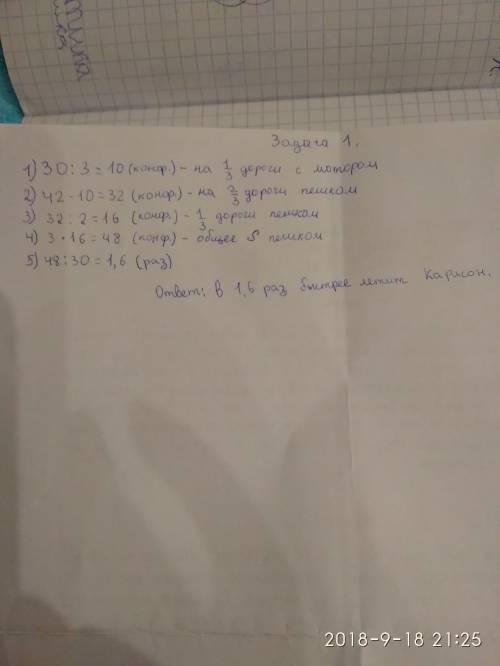 Задача 1.
1) 30 : 3 = 10 (конф.) - на 1/3 дороги с мотором
2) 42 - 10 = 32 (конф.) - на 2/3 дороги пешком
3) 32 : 2 = 16 (конф.) - 1/3 дороги пешком
4) 3 • 16 = 48 (конф.) - общее S пешком
5) 48 : 30 = 1,6 (раз)
Ответ: в 1,6 раз быстрее летит Карлсон.
2018-9-18 21:25